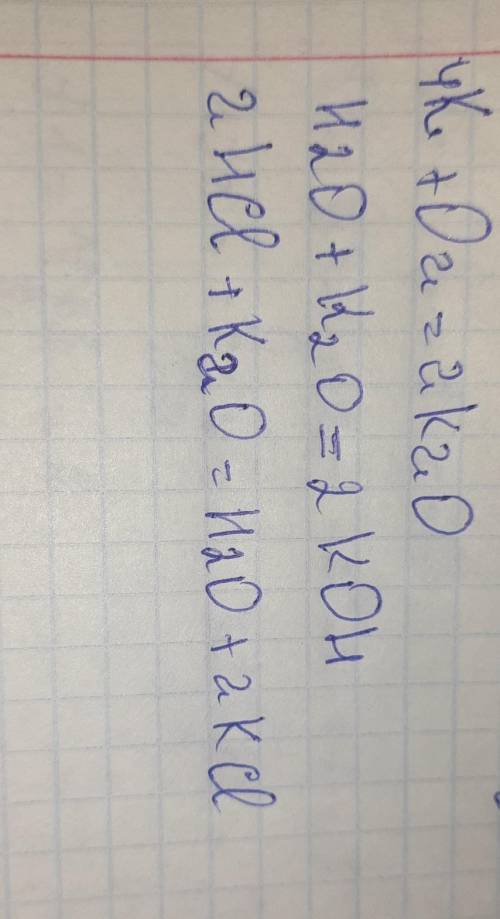 4K + O2 = 2K2O
H2O + K2O = 2KOH
2HCl + K2O = H2O + 2KCl